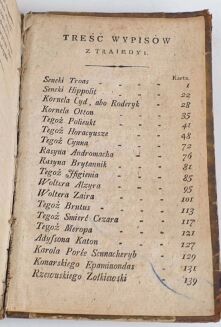 TREŚĆ WYPISÓW
Z TRAJEDYI.
Karta.
Seneki Troas 1
Seneki Hippolit 22
Kornela Cyd, abo Roderyk 28
Kornela Otton 35
Tegoż Polieukt 41
Tegoż Horacyusze 48
Tegoż Cynna 72
Rasyna Andromacha 76
Rasyna Brytannik 81
Tegoż Ifigienia 85
Woltera Alzyra 95
Woltera Zaira 101
Tegoż Brutus 113
Tegoż Śmierć Cezara 117
Tegoż Meropa 121
Adyssona Katon 127
Karola Porée Sennacheryb 129
Konarskiego Epaminondas 131
Rzewuskiego Żołkiewski 139